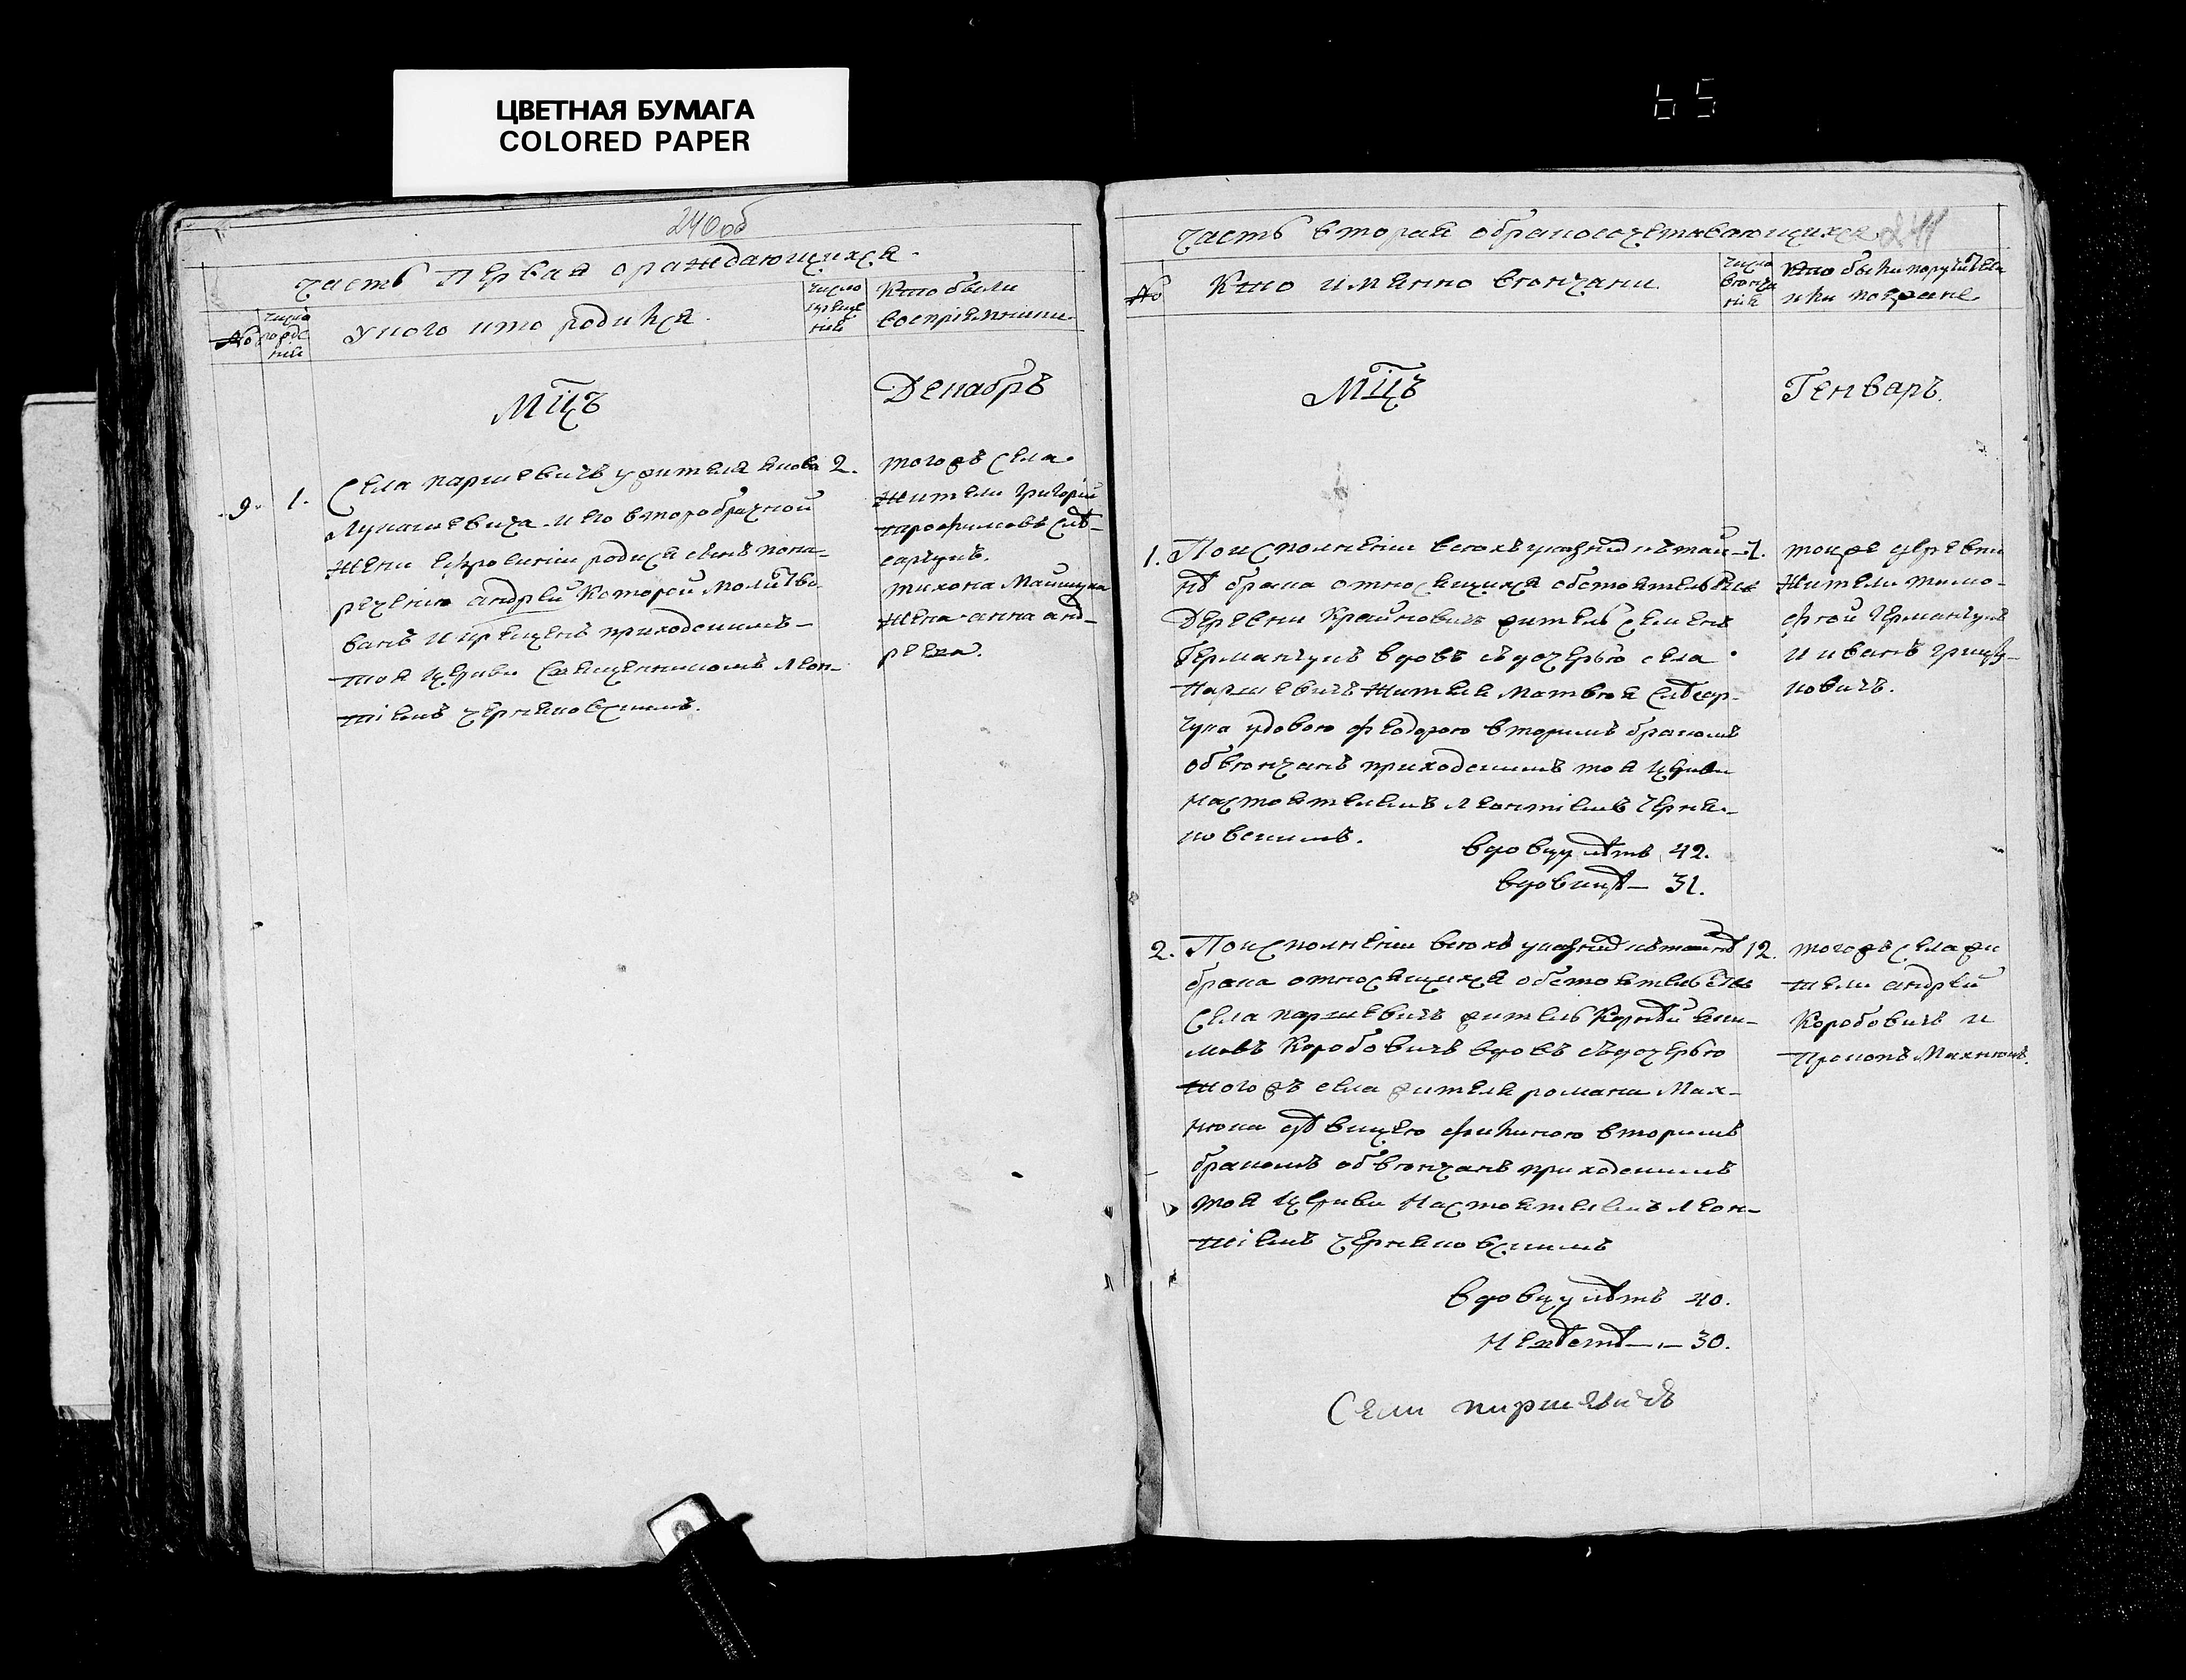 ЦВЕТНАЯ БУМАГА
COLORED PAPER
65
240об
часть первая ораждающихся.
№
число рожде ній
У кого кто родился.
число креще ній
Кто были
восприемники
Мцъ
Декабръ
9. 1.
Села паршевичъ жителя якова 2.
Лукашевича и его второбрачной
жени Ефросиніи родися синъ пона-
речению андрей которой молитво-
ванъ и крещенъ приходскимъ
тоя церкви священникомъ Леон-
тіемъ черняковскимъ.
тогожъ села
жители григорій
трофимовъ слѣ-
сарчукъ.
тихона
жена анна анд-
реева.
часть вторая обракосочетавающихся 241
№
Кто имянно вѣнчани.
число вѣнча нія
Кто были поручители
или поезжане
Мцъ
Генваръ.
1. Поисполненіи всѣхъ указнихъ къ тай- 7.
нѣ брака относящихся обстоятельствъ
Деревни Крайновичъ житель Семенъ
Германчукъ вдовъ съ дочерью села
Паршевичъ жителя Матвея Слѣсар-
чука вдовою феодорою вторимъ бракомъ
обвѣнчанъ приходскимъ тоя церкви
настоятелемъ Леонтіемъ Черня-
ковскимъ.
вдовцу лѣтъ 42.
вдовицѣ — 31.
тоижъ деревни
жители тимо-
фтой Германчукъ
и иванъ грицу-
ковичъ.
2. Поисполненіи всѣхъ указнихъ къ тайнѣ 12.
брака относящихся обстоятельствъ
Села паршевичъ житель Корнѣй яки-
мовъ Коробовичъ вдовъ съ дочерью
тогожъ села жителя романа Мах-
нюка дѣвицею фикиною вторимъ
бракомъ обвѣнчанъ приходскимъ
тоя церкви настоятелемъ Леон-
тіемъ черняковскимъ
вдовцу лѣтъ 40.
невѣстѣ — 30.
тогожъ села жи
тели андрей
Коробовичъ и
Прокопъ Махнюкъ.
Сели паршевичъ